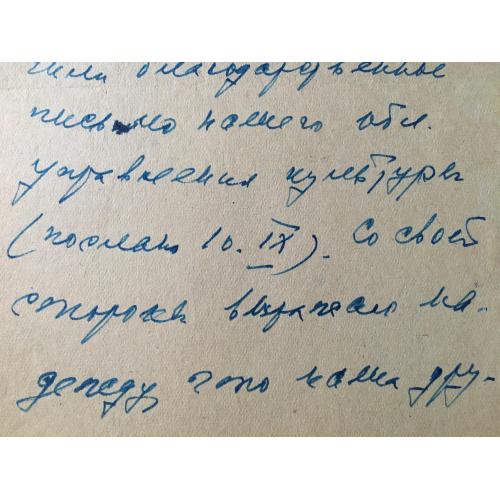 чили благодарственное
письмо нашего обл.
управления культуры
(послано 10. IX). Со своей
стороны выражаю на-
дежду, что наша дру-